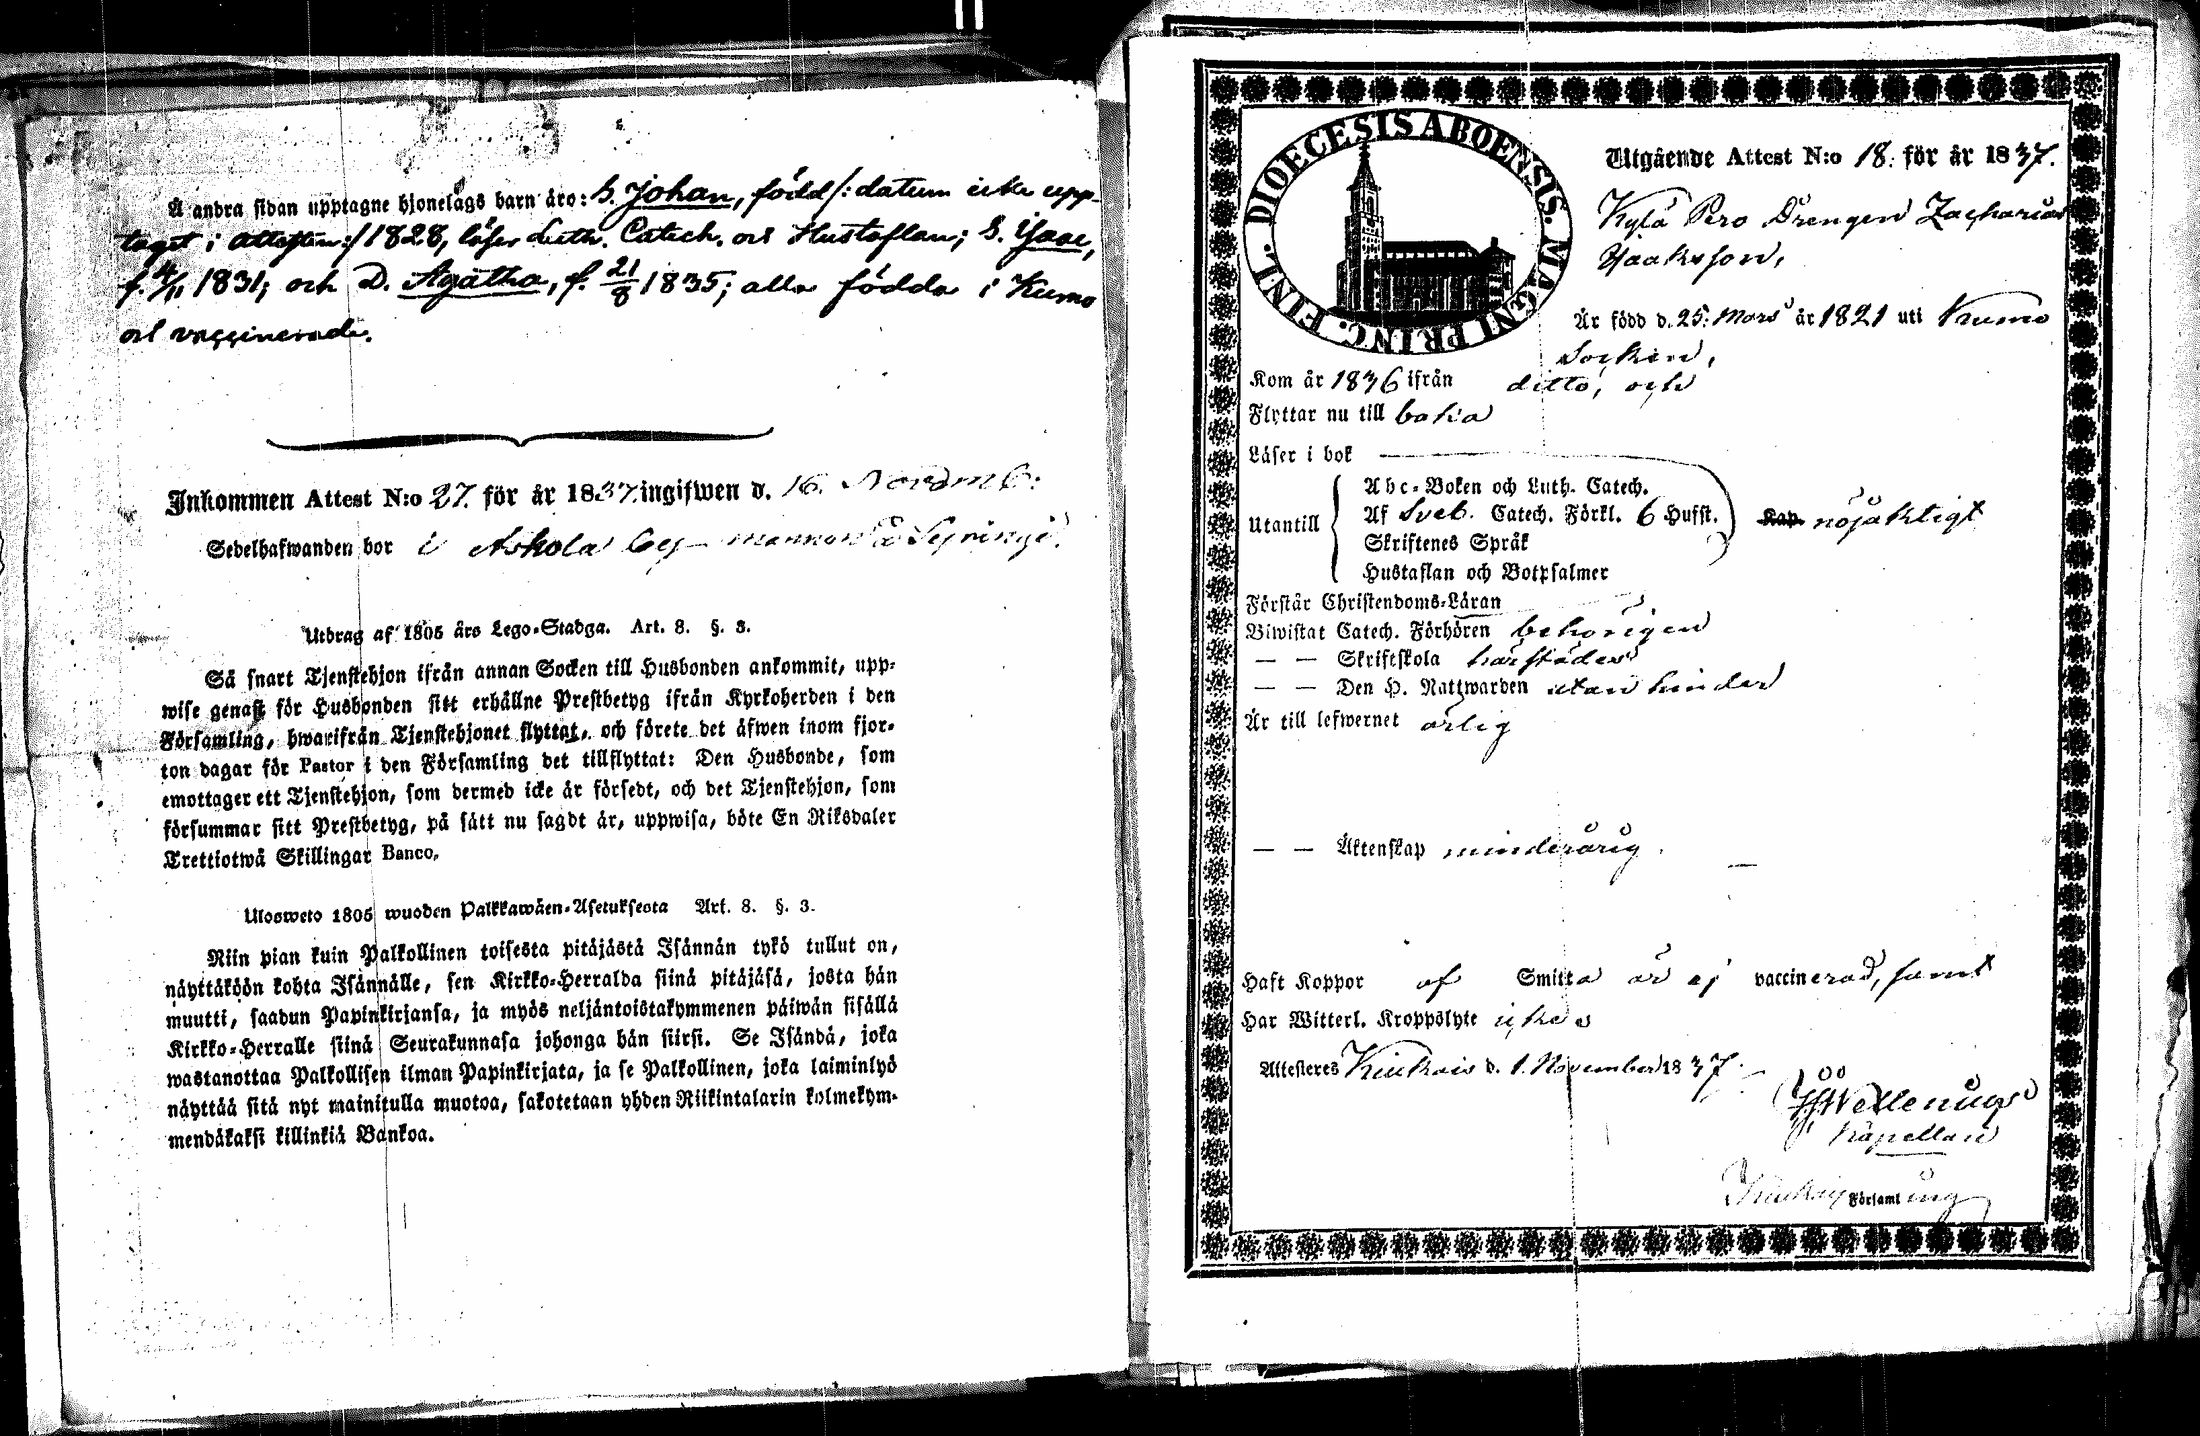 Å andra sidan upptagne hjonelags barn äro: S. Johan, född /: datum icke upp-
taget i attesten :/ 1828, läser Luth. Catech. och Hustaflan; S. Isaac,
f. 4/11 1831; och D. Agatha, f. 21/8 1835; alla födda i Kumo
och vaccinerade.
Inkommen Attest N:o 27. för år 1837. ingifwen d. 16. Novemb:
Sedelhafwanden bor i Askola by
Utdrag af 1805 års Lego-Stadga. Art. 8. §. 3.
Så snart Tjenstehjon ifrån annan Socken till Husbonden ankommit, upp-
wise genast för Husbonden sitt erhållne Prestbetyg ifrån Kyrkoherden i den
Församling, hwarifrån Tjenstehjonet flyttat, och förete det äfwen inom fjor-
ton dagar för Pastor i den Församling det tillflyttat: Den Husbonde, som
emottager ett Tjenstehjon, som dermed icke är försedt, och det Tjenstehjon, som
försummar sitt Prestbetyg, på sätt nu sagdt är, uppwisa, böte En Riksdaler
Trettiotwå Skillingar Banco.
Ulosweto 1805 wuoden Palkkawäen-Asetuksesta Art. 8. §. 3.
Niin pian kuin Palkollinen toisesta pitäjästä Isännän tykö tullut on,
näyttäköön kohta Isännälle, sen Kirkko-Herralda siinä pitäjäsä, josta hän
muutti, saadun Papinkirjansa, ja myös neljäntoistakymmenen päiwän sisällä
Kirkko-Herralle siinä Seurakunnasa johonga hän siirsi. Se Isändä, joka
wastanottaa Palkollisen ilman Papinkirjata, ja se Palkollinen, joka laiminlyö
näyttää sitä nyt mainitulla muotoa, sakotetaan yhden Riikintalarin kolmekym-
mendäkaksi killinkiä Bankoa.
DIOECESIS ABOENSIS. MAGNI PRINC. FINL.
Utgående Attest N:o 18. för år 1837.
Kylä Pero Drengen Zacharias
Isaaksson,
Är född d. 25. Mars år 1821 uti Kumo
Socken,
Kom år 1836 ifrån ditto, och
Flyttar nu till baka
Läser i bok
Utantill
Abc-Boken och Luth. Catech.
Af Sveb. Catech. Förkl. 6 Hufst.
Skriftenes Språk
Hustaflan och Botpsalmer
Kap. nöjaktigt
Förstår Christendoms-Läran
Biwistat Catech. Förhören behörigen
— — Skriftskola härstädes
— — Den H. Nattwarden utan hinder
Är till lefwernet ärlig
— — Äktenskap minderårig.
Haft Koppor af Smitta är ej vaccinerad, samt
Har Witterl. Kroppslyte icke
Attesteres Kiukais d. 1. November 1837.
Wellenius
Kapellan
Kiukais Församling